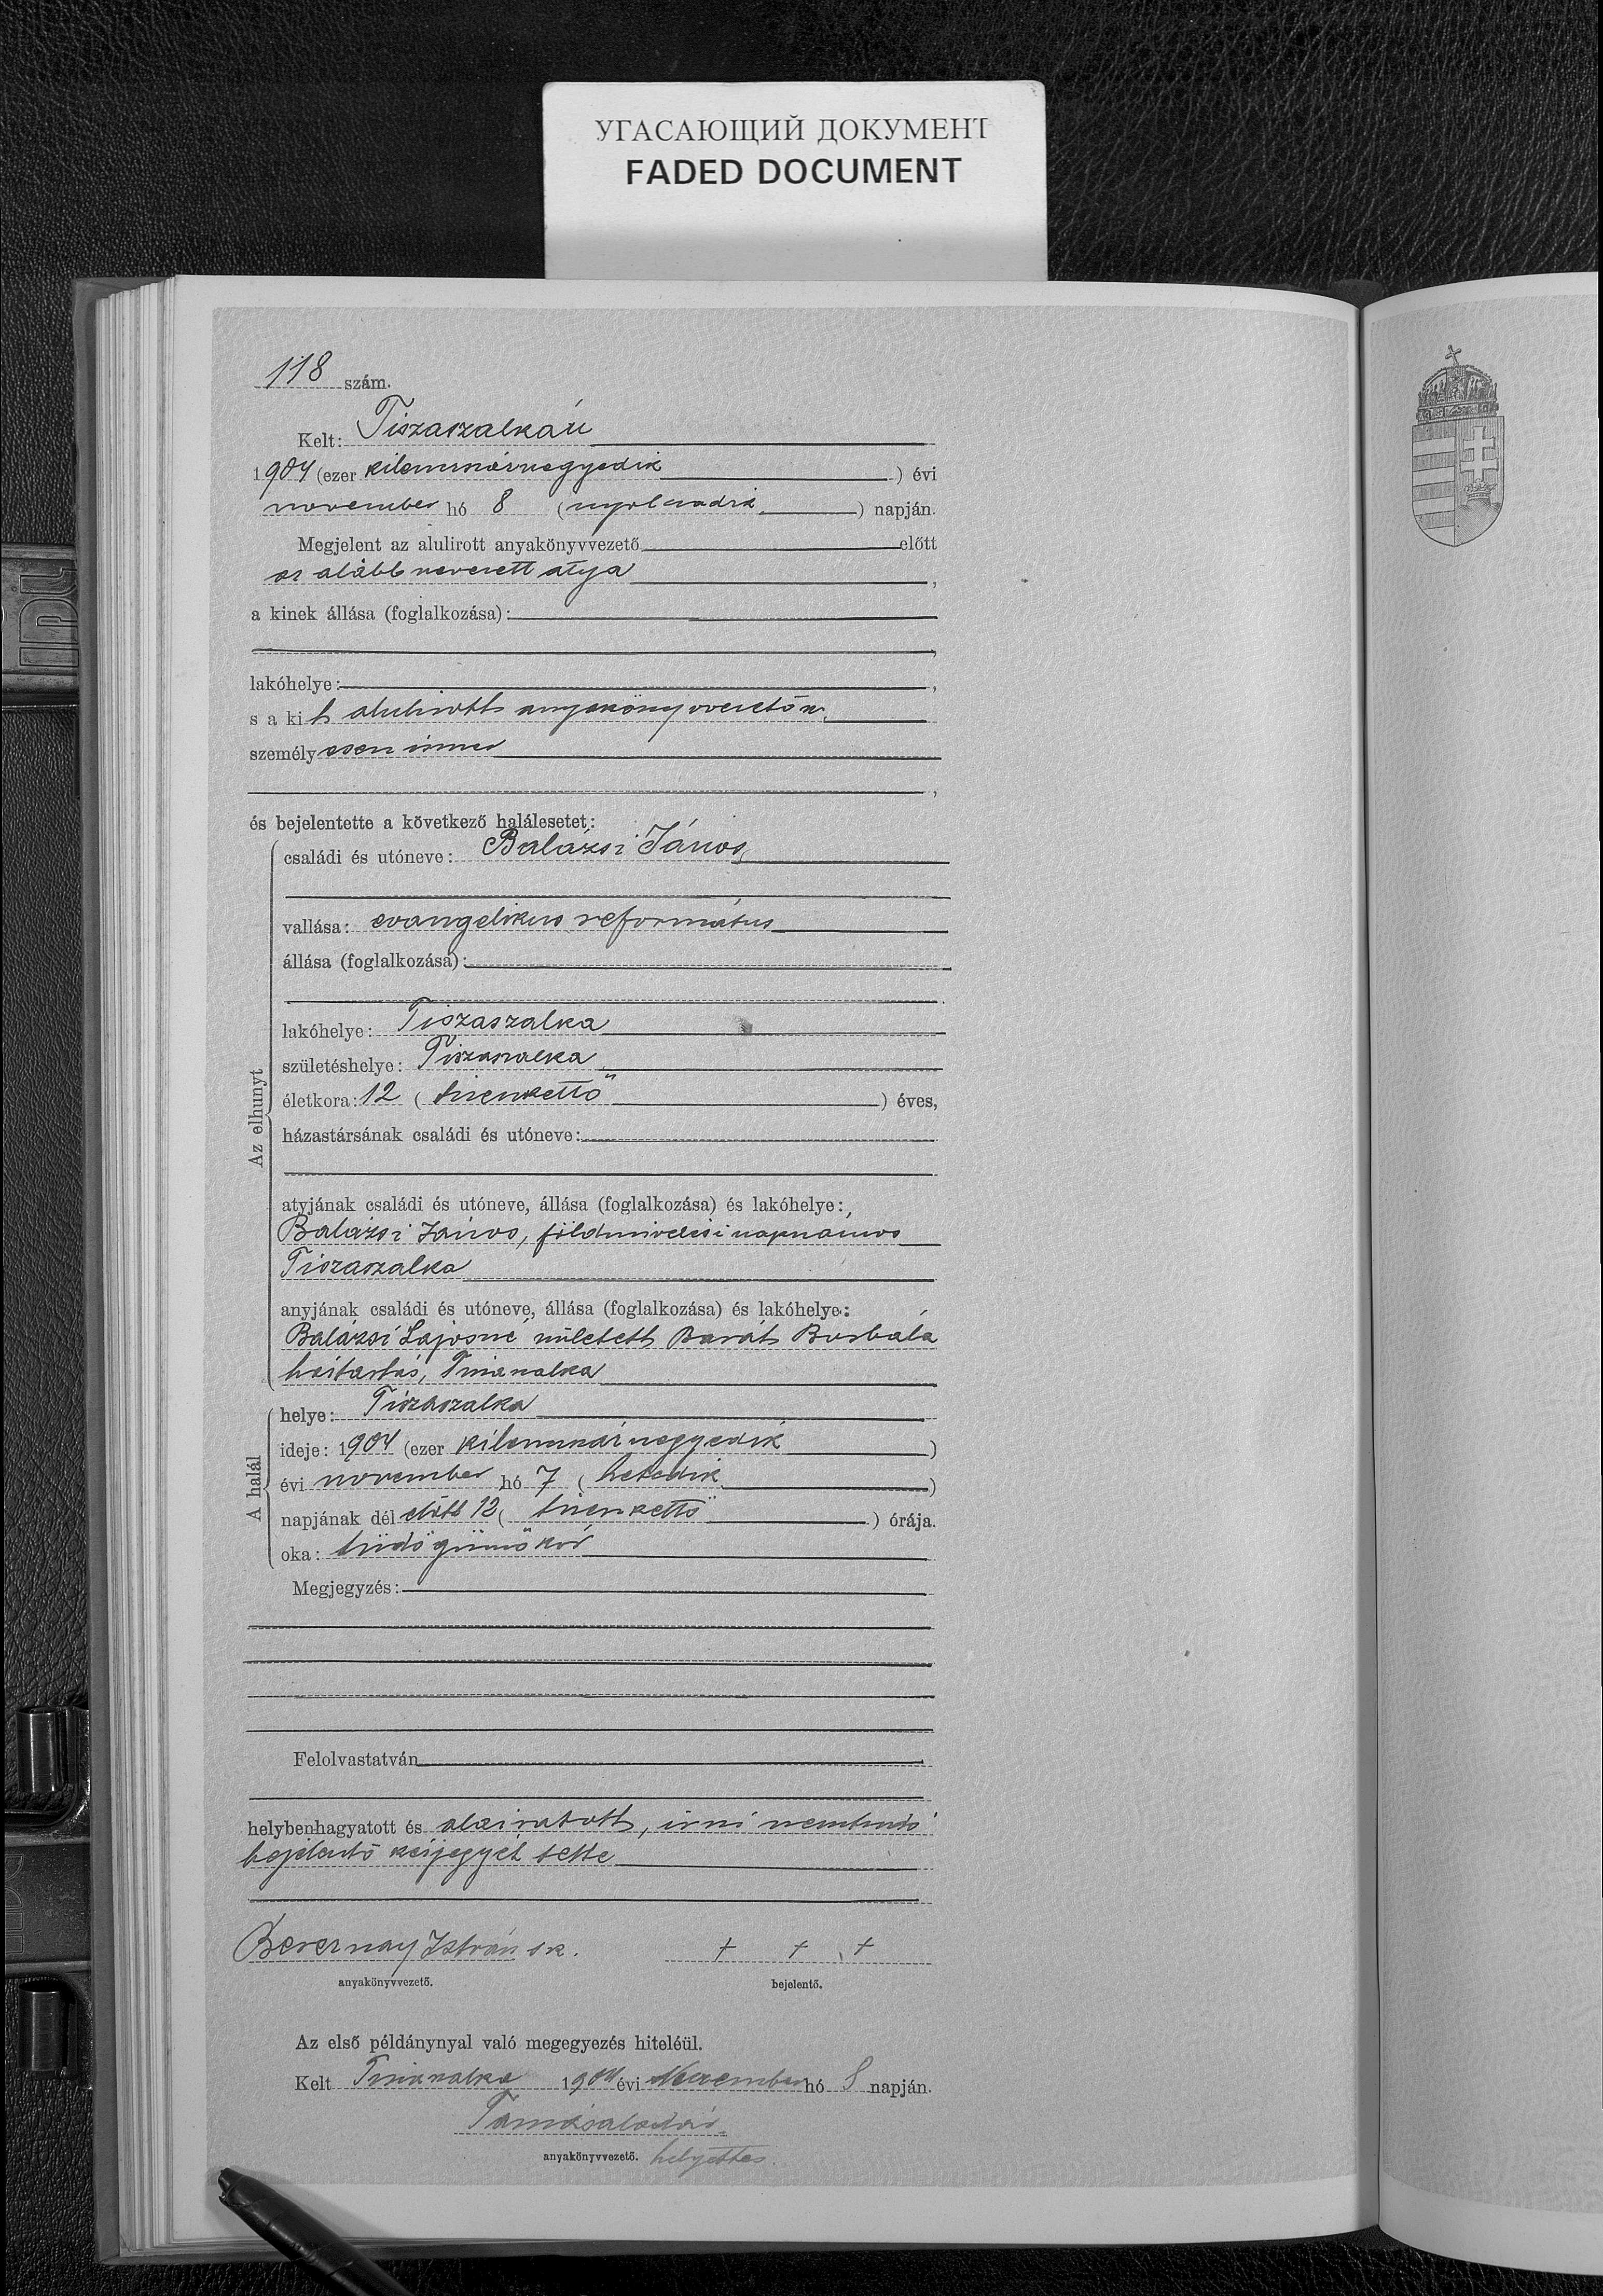 УГАСАЮЩИЙ ДОКУМЕНТ
FADED DOCUMENT
118 szám.
Kelt: Tiszaszalkán
1904 (ezer kilencszáznegyedik) évi
november hó 8 (nyolczadik) napján.
Megjelent az alulirott anyakönyvvezető előtt
az alább nevezett atya,
a kinek állása (foglalkozása):
,
lakóhelye: ,
s a kit alulirott anyakönyvvezető
személyesen ismer
,
és bejelentette a következő halálesetet:
Az elhunyt
családi és utóneve: Balázsi János
vallása: evangelikus református
állása (foglalkozása):
lakóhelye: Tiszaszalka
születéshelye: Tiszaszalka
életkora: 12 (tizenkettő) éves,
házastársának családi és utóneve:
atyjának családi és utóneve, állása (foglalkozása) és lakóhelye:
Balázsi János, földmivelési napszámos
Tiszaszalka
anyjának családi és utóneve, állása (foglalkozása) és lakóhelye:
Balázsi Lajosné született Barát Borbála
háztartás, Tiszaszalka
A halál
helye: Tiszaszalka
ideje: 1904 (ezer kilencszáznegyedik)
évi november hó 7 (hetedik)
napjának dél előtt 12 (tizenkettő) órája.
oka: tüdőgümőkór
Megjegyzés:
Felolvastatván
helybenhagyatott és aláiratott, irni nemtudó
bejelentő kézjegyét tette
István sk. + + +
anyakönyvvezető. bejelentő.
Az első példánynyal való megegyezés hiteléül.
Kelt Tiszaszalka 1904 évi November hó 8 napján.
anyakönyvvezető. helyettes.